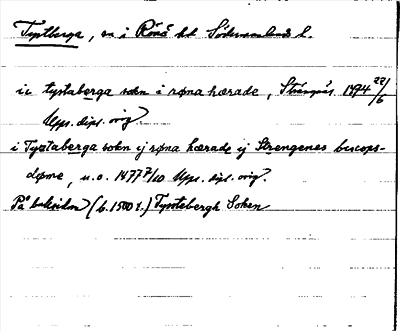 Tystberga, sn i Rönö hd Södermanlands l.
i tystaberga sokn i røna hærade, Strängnäs 1494 22/6
Upps. dipl. orig.
i Tystaberga sokn ij røna hærade ij Strengenes biscops-
døme, u.o. 1477 7/10 Upps. dipl. orig.
På baksidan (b. 1500 t.) Tysstebergh Soken